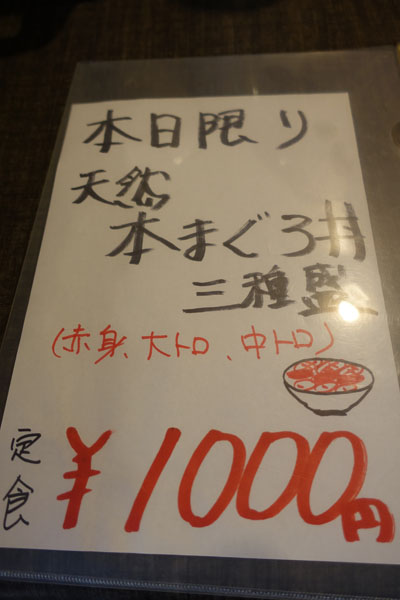 本日限り
天然
本まぐろ丼
三種盛
(赤身、大トロ、中トロ)
定食
¥1000円